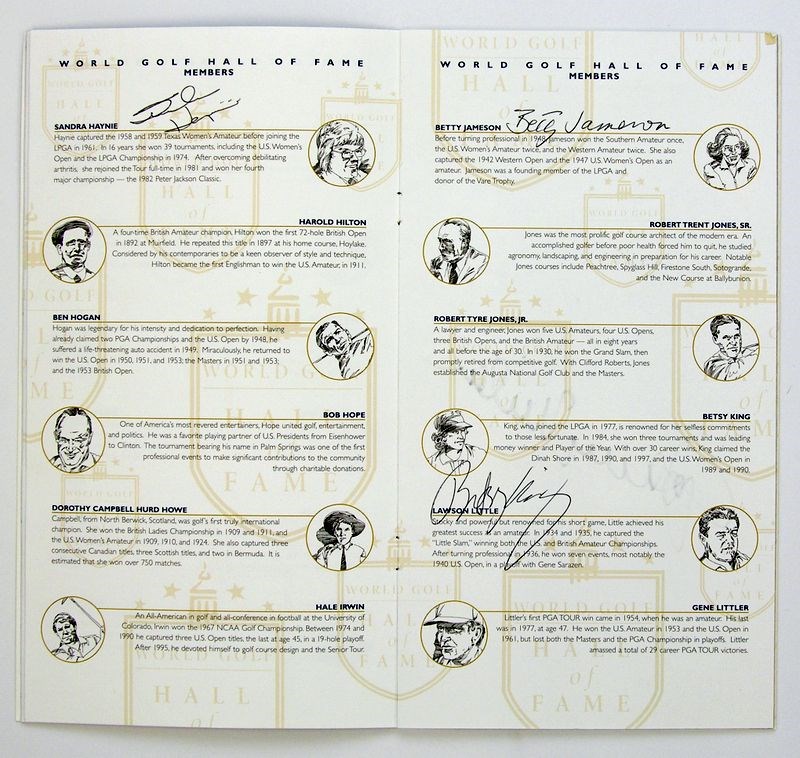 WORLD GOLF HALL OF FAME
MEMBERS
SANDRA HAYNIE
Haynie captured the 1958 and 1959 Texas Women's Amateur before joining the
LPGA in 1961. In 16 years she won 39 tournaments, including the U.S. Women's
Open and the LPGA Championship in 1974. After overcoming debilitating
arthritis, she rejoined the Tour full-time in 1981 and won her fourth
major championship — the 1982 Peter Jackson Classic.
HAROLD HILTON
A four-time British Amateur champion, Hilton won the first 72-hole British Open
in 1892 at Muirfield. He repeated this title in 1897 at his home course, Hoylake.
Considered by his contemporaries to be a keen observer of style and technique,
Hilton became the first Englishman to win the U.S. Amateur, in 1911.
BEN HOGAN
Hogan was legendary for his intensity and dedication to perfection. Having
already claimed two PGA Championships and the U.S. Open by 1948, he
suffered a life-threatening auto accident in 1949. Miraculously, he returned to
win the U.S. Open in 1950, 1951, and 1953; the Masters in 1951 and 1953;
and the 1953 British Open.
BOB HOPE
One of America's most revered entertainers, Hope united golf, entertainment,
and politics. He was a favorite playing partner of U.S. Presidents from Eisenhower
to Clinton. The tournament bearing his name in Palm Springs was one of the first
professional events to make significant contributions to the community
through charitable donations.
DOROTHY CAMPBELL HURD HOWE
Campbell, from North Berwick, Scotland, was golf's first truly international
champion. She won the British Ladies Championship in 1909 and 1911, and
the U.S. Women's Amateur in 1909, 1910, and 1924. She also captured three
consecutive Canadian titles, three Scottish titles, and two in Bermuda. It is
estimated that she won over 750 matches.
HALE IRWIN
An All-American in golf and all-conference in football at the University of
Colorado, Irwin won the 1967 NCAA Golf Championship. Between 1974 and
1990 he captured three U.S. Open titles, the last at age 45, in a 19-hole playoff.
After 1995, he devoted himself to golf course design and the Senior Tour.
WORLD GOLF HALL OF FAME
MEMBERS
BETTY JAMESON Betty Jameson
Before turning professional in 1948, Jameson won the Southern Amateur once,
the U.S. Women's Amateur twice, and the Western Amateur twice. She also
captured the 1942 Western Open and the 1947 U.S. Women's Open as an
amateur. Jameson was a founding member of the LPGA and
donor of the Vare Trophy.
ROBERT TRENT JONES, SR.
Jones was the most prolific golf course architect of the modern era. An
accomplished golfer before poor health forced him to quit, he studied
agronomy, landscaping, and engineering in preparation for his career. Notable
Jones courses include Peachtree, Spyglass Hill, Firestone South, Sotogrande,
and the New Course at Ballybunion.
ROBERT TYRE JONES, JR.
A lawyer and engineer, Jones won five U.S. Amateurs, four U.S. Opens,
three British Opens, and the British Amateur — all in eight years
and all before the age of 30. In 1930, he won the Grand Slam, then
promptly retired from competitive golf. With Clifford Roberts, Jones
established the Augusta National Golf Club and the Masters.
BETSY KING
King, who joined the LPGA in 1977, is renowned for her selfless commitments
to those less fortunate. In 1984, she won three tournaments and was leading
money winner and Player of the Year. With over 30 career wins, King claimed the
Dinah Shore in 1987, 1990, and 1997, and the U.S. Women's Open in
1989 and 1990.
Betsy King
LAWSON LITTLE
Stocky and powerful but renowned for his short game, Little achieved his
greatest success as an amateur. In 1934 and 1935, he captured the
"Little Slam," winning both the U.S. and British Amateur Championships.
After turning professional in 1936, he won seven events, most notably the
1940 U.S. Open, in a playoff with Gene Sarazen.
GENE LITTLER
Littler's first PGA TOUR win came in 1954, when he was an amateur. His last
was in 1977, at age 47. He won the U.S. Amateur in 1953 and the U.S. Open in
1961, but lost both the Masters and the PGA Championship in playoffs. Littler
amassed a total of 29 career PGA TOUR victories.